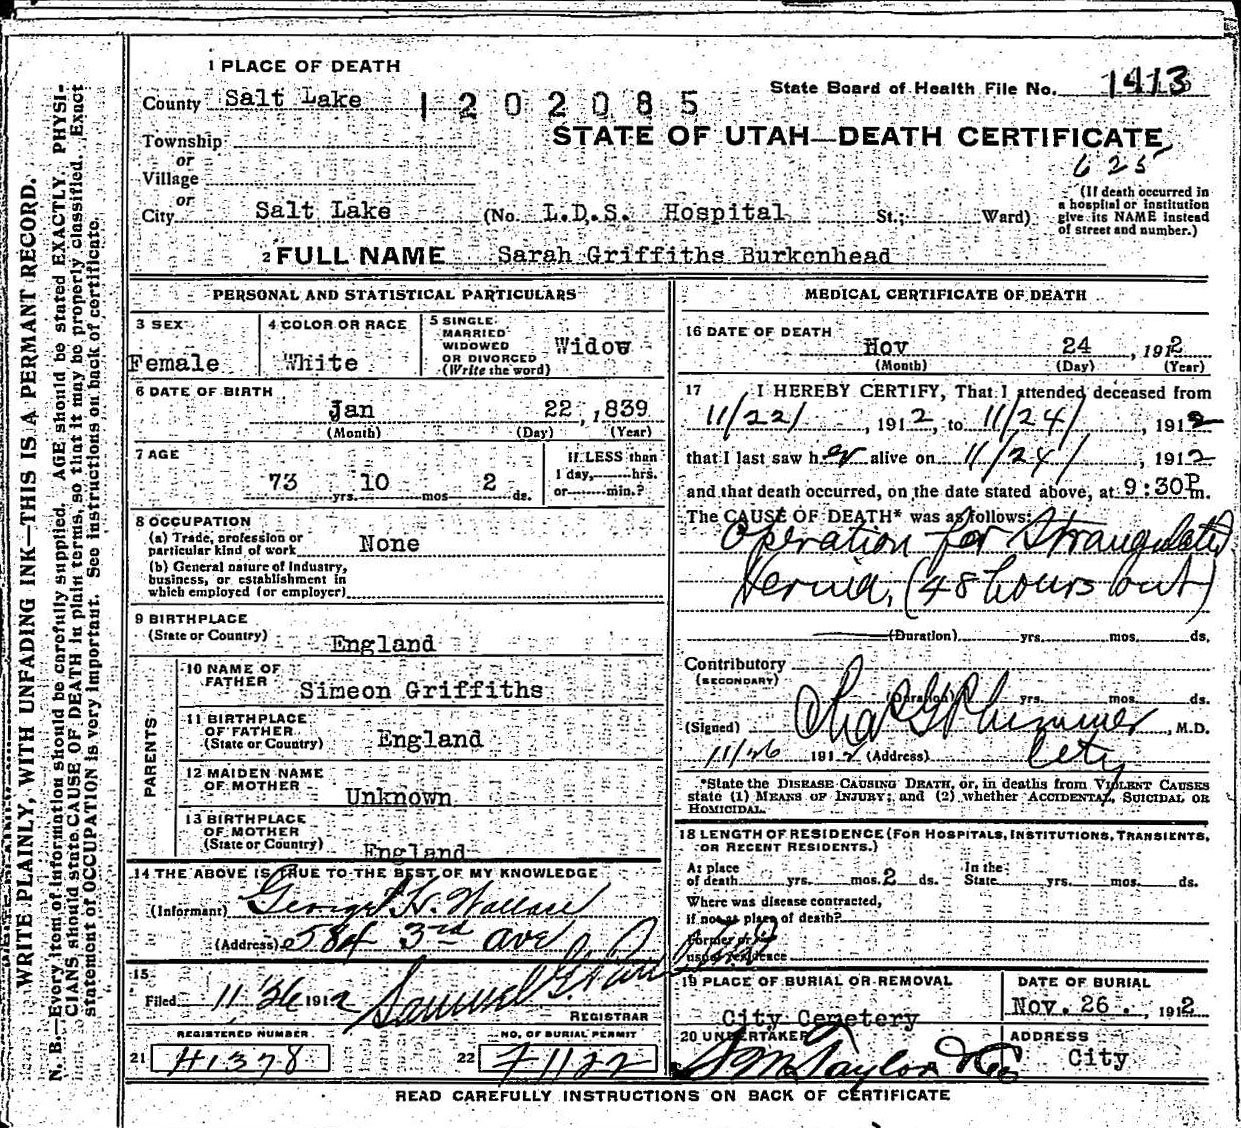 1 PLACE OF DEATH
County Salt Lake 1 2 0 2 0 8 5
State Board of Health File No. 1413
STATE OF UTAH—DEATH CERTIFICATE
Township
or
Village
or
625
(If death occurred in
a hospital or institution
give its NAME instead
of street and number.)
City Salt Lake (No. L.D.S. Hospital St.; Ward)
2 FULL NAME Sarah Griffiths Burkenhead
PERSONAL AND STATISTICAL PARTICULARS
3 SEX
Female
4 COLOR OR RACE
White
5 SINGLE
MARRIED
WIDOWED
OR DIVORCED
(Write the word)
Widow
6 DATE OF BIRTH
Jan 22, 1839
(Month) (Day) (Year)
7 AGE
73 yrs. 10 mos 2 ds.
If LESS than
1 day, hrs.
or min.?
8 OCCUPATION
(a) Trade, profession or
particular kind of work None
(b) General nature of industry,
business, or establishment in
which employed (or employer)
9 BIRTHPLACE
(State or Country) England
PARENTS
10 NAME OF
FATHER Simeon Griffiths
11 BIRTHPLACE
OF FATHER
(State or Country) England
12 MAIDEN NAME
OF MOTHER
Unknown
13 BIRTHPLACE
OF MOTHER
(State or Country) England
14 THE ABOVE IS TRUE TO THE BEST OF MY KNOWLEDGE
(Informant) George H. Wallace
(Address) 584 3rd Ave
15
Filed 11/26 1912 Samuel G. Paul
REGISTRAR
REGISTERED NUMBER
21 H1378
NO. OF BURIAL PERMIT
22 F1122
MEDICAL CERTIFICATE OF DEATH
16 DATE OF DEATH
Nov 24, 1912
(Month) (Day) (Year)
17 I HEREBY CERTIFY, That I attended deceased from
11/22/, 1912, to 11/24/, 1912
that I last saw her alive on 11/24/, 1912
and that death occurred, on the date stated above, at 9:30P.m.
The CAUSE OF DEATH* was as follows:
Operation for Strangulated
Hernia, (48 hours out)
(Duration) yrs. mos. ds.
Contributory
(SECONDARY)
(Duration) yrs. mos. ds.
(Signed) Chas G Plummer, M.D.
11/26 1912 (Address) City
*State the DISEASE CAUSING DEATH, or, in deaths from VIOLENT CAUSES
state (1) MEANS OF INJURY; and (2) whether ACCIDENTAL, SUICIDAL OR
HOMICIDAL.
18 LENGTH OF RESIDENCE (FOR HOSPITALS, INSTITUTIONS, TRANSIENTS,
OR RECENT RESIDENTS.)
At place
of death yrs. mos. 2 ds.
In the
State yrs. mos. ds.
Where was disease contracted,
if not at place of death?
Former or
usual residence
19 PLACE OF BURIAL OR REMOVAL
City Cemetery
DATE OF BURIAL
Nov. 26., 1912
20 UNDERTAKER
S M Taylor & Co
ADDRESS
City
READ CAREFULLY INSTRUCTIONS ON BACK OF CERTIFICATE
WRITE PLAINLY, WITH UNFADING INK—THIS IS A PERMANT RECORD.
N. B.—Every item of information should be carefully supplied. AGE should be stated EXACTLY. PHYSI-
CIANS should state CAUSE OF DEATH in plain terms, so that it may be properly classified. Exact
statement of OCCUPATION is very important. See instructions on back of certificate.